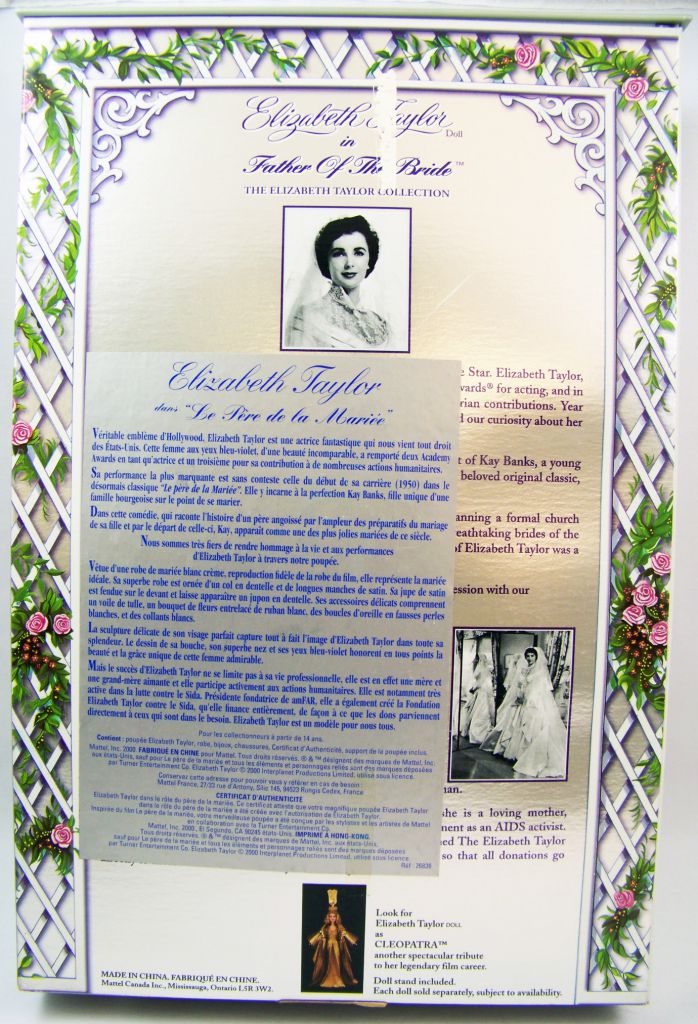 Elizabeth Taylor Doll
in
Father Of The Bride™
THE ELIZABETH TAYLOR COLLECTION
e Star. Elizabeth Taylor,
wards® for acting, and in
rian contributions. Year
d our curiosity about her
t of Kay Banks, a young
beloved original classic,
anning a formal church
reathtaking brides of the
of Elizabeth Taylor was a
ession with our
man.
she is a loving mother,
ment as an AIDS activist.
ned The Elizabeth Taylor
so that all donations go
Elizabeth Taylor
dans "Le Père de la Mariée"
Véritable emblème d'Hollywood, Elizabeth Taylor est une actrice fantastique qui nous vient tout droit
des États-Unis. Cette femme aux yeux bleu-violet, d'une beauté incomparable, a remporté deux Academy
Awards en tant qu'actrice et un troisième pour sa contribution à de nombreuses actions humanitaires.
Sa performance la plus marquante est sans conteste celle du début de sa carrière (1950) dans le
désormais classique "Le père de la Mariée". Elle y incarne à la perfection Kay Banks, fille unique d'une
famille bourgeoise sur le point de se marier.
Dans cette comédie, qui raconte l'histoire d'un père angoissé par l'ampleur des préparatifs du mariage
de sa fille et par le départ de celle-ci, Kay, apparaît comme une des plus jolies mariées de ce siècle.
Nous sommes très fiers de rendre hommage à la vie et aux performances
d'Elizabeth Taylor à travers notre poupée.
Vêtue d'une robe de mariée blanc crème, reproduction fidèle de la robe du film, elle représente la mariée
idéale. Sa superbe robe est ornée d'un col en dentelle et de longues manches de satin. Sa jupe de satin
est fendue sur le devant et laisse apparaître un jupon en dentelle. Ses accessoires délicats comprennent
un voile de tulle, un bouquet de fleurs entrelacé de ruban blanc, des boucles d'oreille en fausses perles
blanches, et des collants blancs.
La sculpture délicate de son visage parfait capture tout à fait l'image d'Elizabeth Taylor dans toute sa
splendeur. Le dessin de sa bouche, son superbe nez et ses yeux bleu-violet honorent en tous points la
beauté et la grâce unique de cette femme admirable.
Mais le succès d'Elizabeth Taylor ne se limite pas à sa vie professionnelle, elle est en effet une mère et
une grand-mère aimante et elle participe activement aux actions humanitaires. Elle est notamment très
active dans la lutte contre le Sida. Présidente fondatrice de amFAR, elle a également créé la Fondation
Elizabeth Taylor contre le Sida, qu'elle finance entièrement, de façon à ce que les dons parviennent
directement à ceux qui sont dans le besoin. Elizabeth Taylor est un modèle pour nous tous.
Pour les collectionneurs à partir de 14 ans.
Contient : poupée Elizabeth Taylor, robe, bijoux, chaussures, Certificat d'Authenticité, support de la poupée inclus.
Mattel, Inc. 2000. FABRIQUÉ EN CHINE pour Mattel. Tous droits réservés. ® & ™ désignent des marques de Mattel, Inc.
aux états-Unis, sauf pour Le père de la mariée et tous les éléments et personnages reliés sont des marques déposées
par Turner Entertainment Co. Elizabeth Taylor © 2000 Interplanet Productions Limited, utilisé sous licence.
Conservez cette adresse pour pouvoir vous y référer en cas de besoin :
Mattel France, 27/33 rue d'Antony, Silic 145, 94523 Rungis Cedex, France
CERTIFICAT D'AUTHENTICITÉ
Elizabeth Taylor dans le rôle du père de la mariée. Ce certificat atteste que votre magnifique poupée Elizabeth Taylor
dans le rôle du père de la mariée a été créée avec l'autorisation de Elizabeth Taylor.
Inspirée du film Le père de la mariée, votre merveilleuse poupée a été conçue par les stylistes et les artistes de Mattel
en collaboration avec le Turner Entertainment Co.
Mattel, Inc. 2000, El Segundo, CA 90245 états-Unis. IMPRIMÉ À HONG-KONG.
Tous droits réservés. ® & ™ désignent des marques de Mattel, Inc. aux états-Unis,
sauf pour Le père de la mariée et tous les éléments et personnages reliés sont des marques déposées
par Turner Entertainment Co. Elizabeth Taylor © 2000 Interplanet Productions Limited, utilisé sous licence.
Réf : 26836
Look for
Elizabeth Taylor DOLL
as
CLEOPATRA™
another spectacular tribute
to her legendary film career.
Doll stand included.
Each doll sold separately, subject to availability.
MADE IN CHINA. FABRIQUÉ EN CHINE.
Mattel Canada Inc., Mississauga, Ontario L5R 3W2.